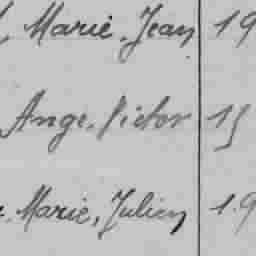 Marie, Jean 19
Ange, Victor 15
Marie, Julien 19